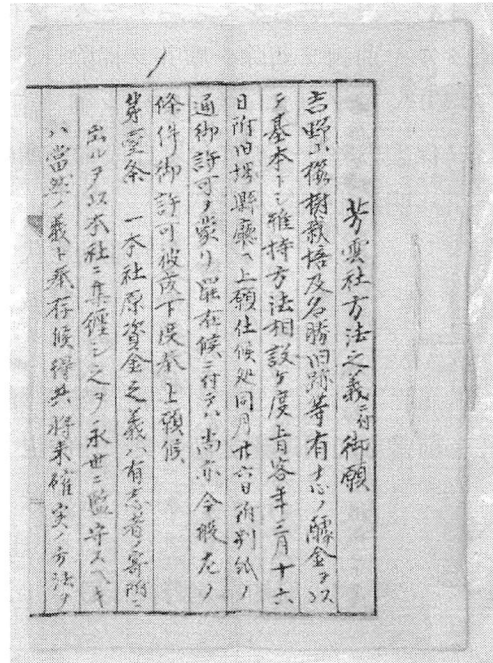 芳雲社方法之義ニ付御願
吉野山櫻樹栽培及名勝旧跡等有志ノ醵金ヲ以
テ基本トシ維持方法相設ケ度旨客年三月十六
日附旧堺縣廳ヘ上願仕候処同月廿六日附別紙ノ
通御許可ヲ蒙リ罷在候ニ付テハ尚亦今般左ノ
條件御許可被成下度奉上願候
第壹条 一本社原資金之義ハ有志者ノ寄附ニ
出ルヲ以本社ニ集纏シ之ヲ永世ニ監守スヘキ
ハ當然ノ義ト奉存候得共将来確実ノ方法ヲ